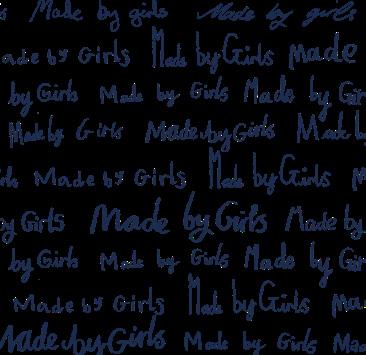 Made by girls Made by girls
Made by Girls Made by Girls Made
by Girls Made by Girls Made by Gir
Made by Girls Made by Girls Made by
Made by Girls Made by Girls
by Girls Made by Girls Made by
by Girls Made by Girls Made by
Made by Girls Made by Girls Ma
Made by Girls Made by Girls Mad